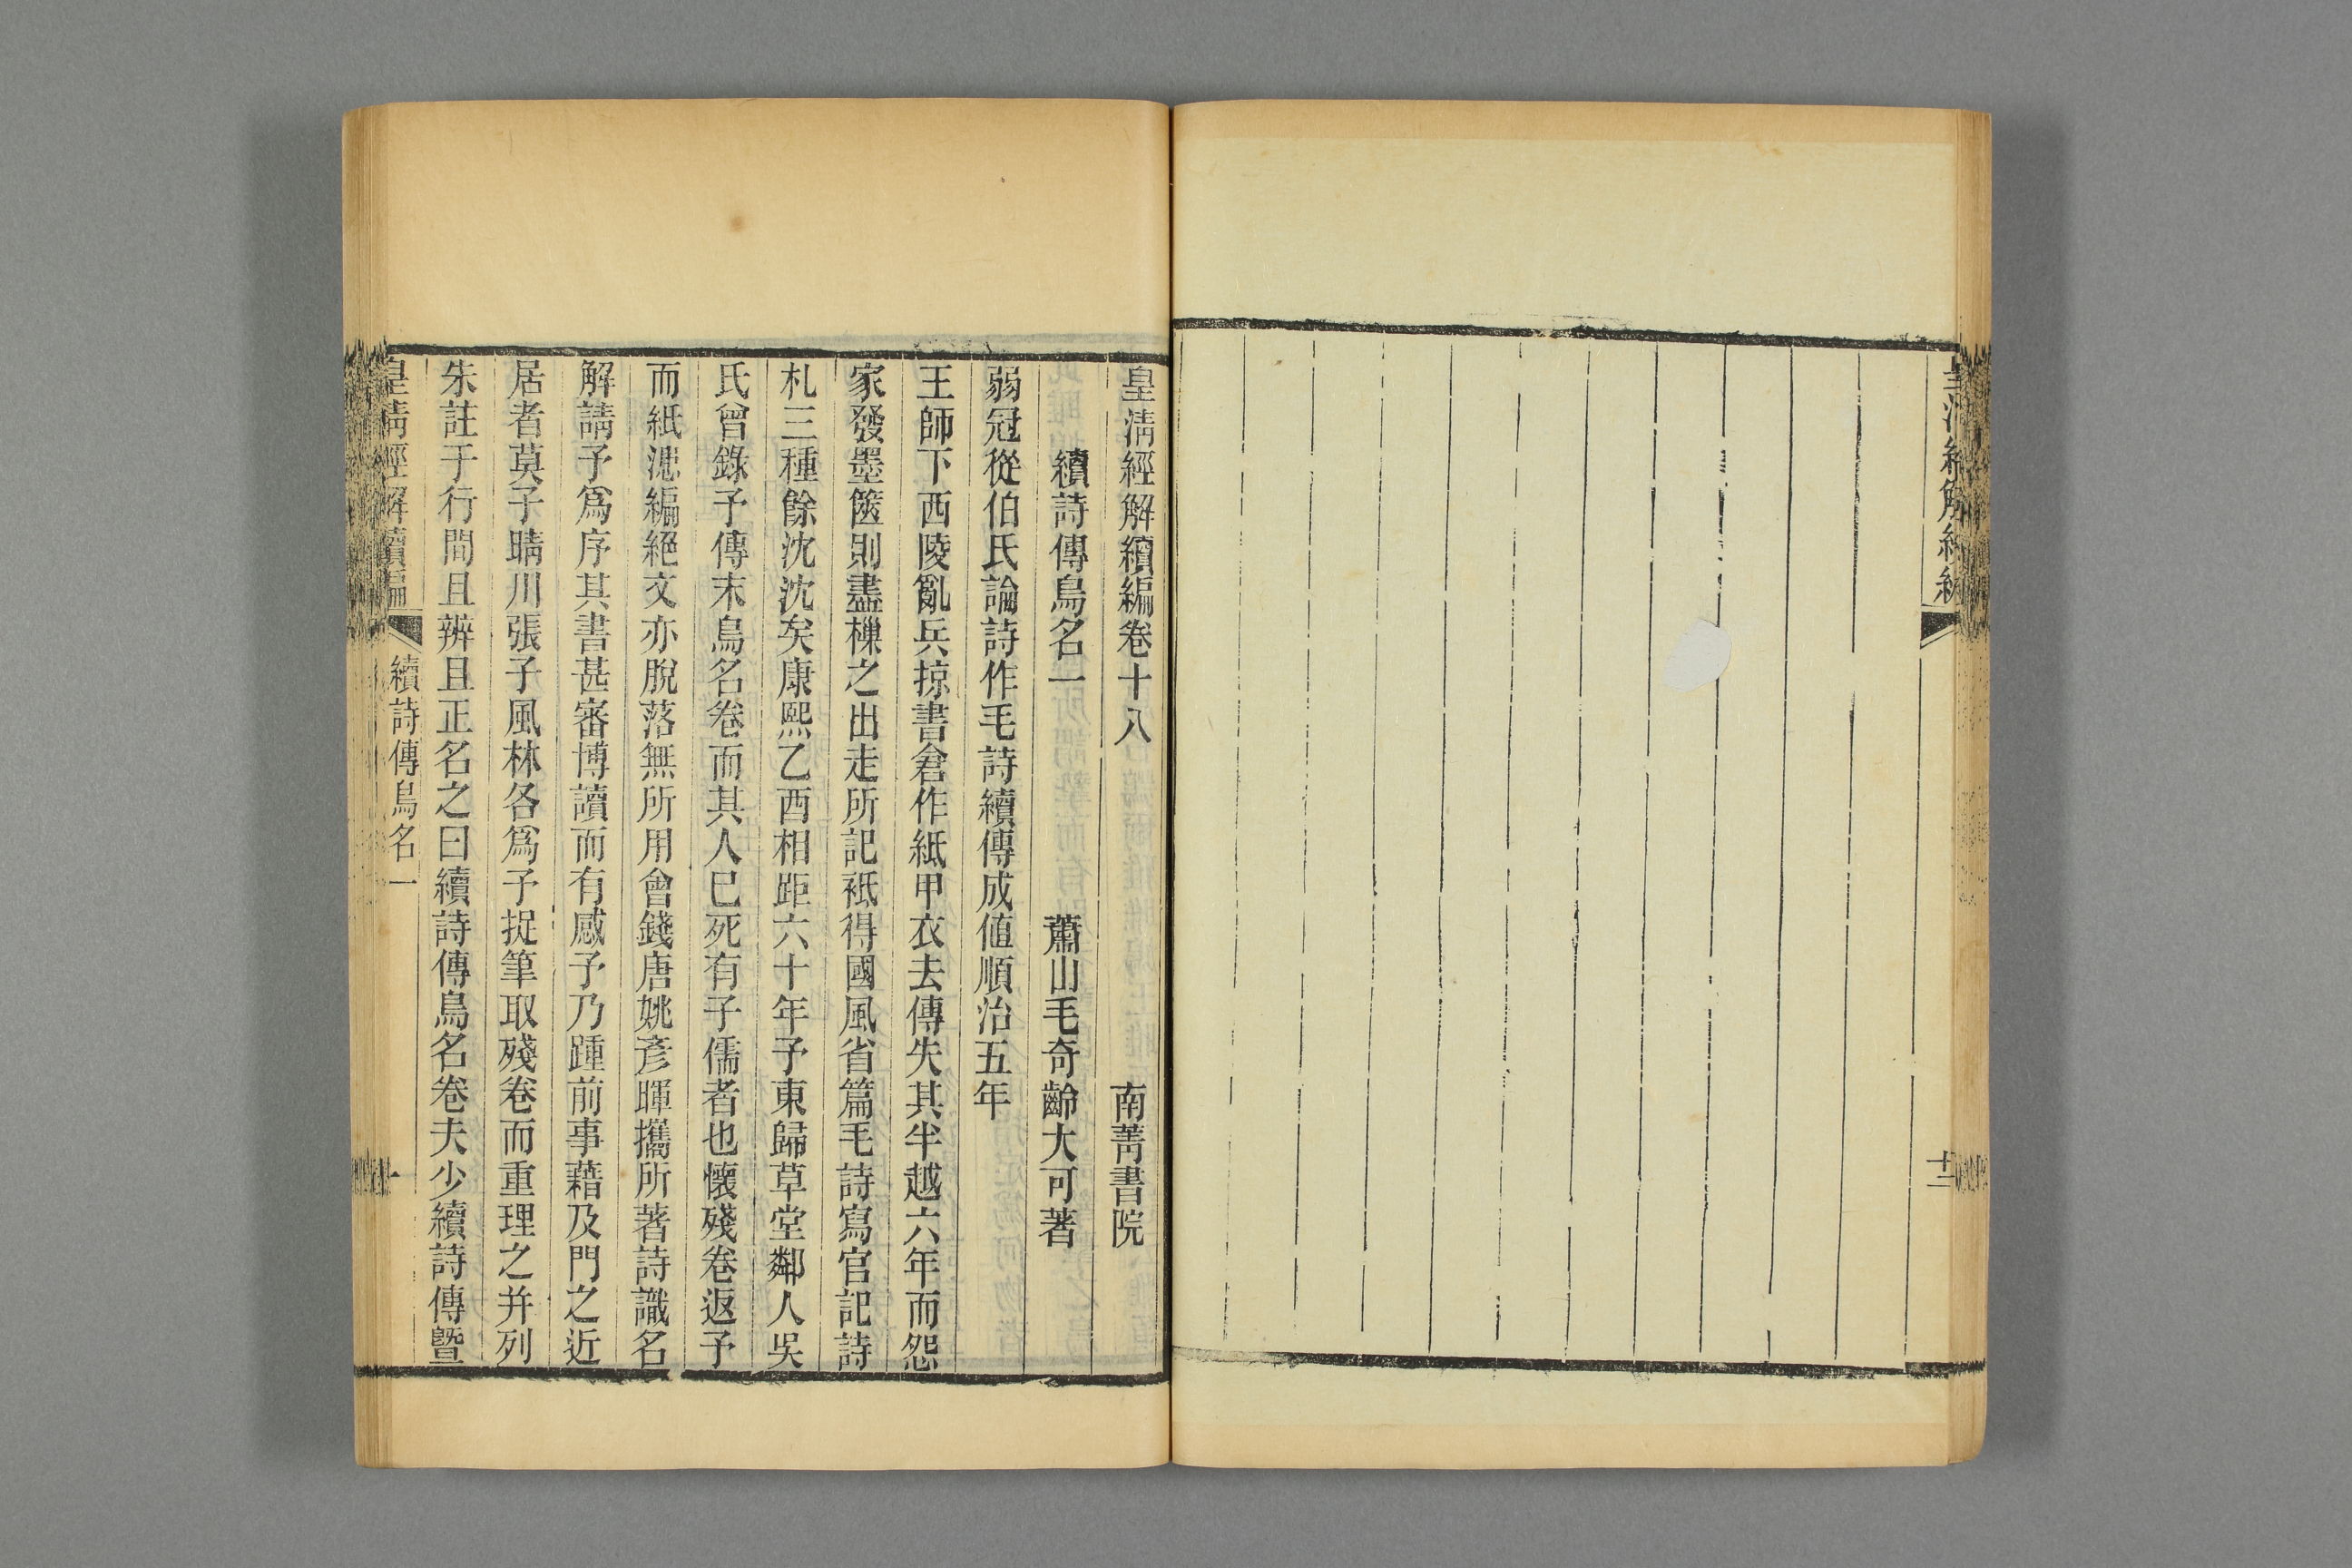 皇清經解續編
十二
皇清經解續編卷十八 南菁書院
續詩傳鳥名一 蕭山毛奇齡大可著
弱冠從伯氏論詩作毛詩續傳成値順治五年
王師下西陵亂兵掠書倉作紙甲衣去傳失其半越六年而怨
家發墨篋則盡櫟之出走所記祗得國風省篇毛詩寫官記詩
札三種餘沈沈矣康熙乙酉相距六十年予東歸草堂鄰人吳
氏曾錄予傳末鳥名卷而其人已死有子儒者也懷殘卷返予
而紙漶編絕文亦脫落無所用會錢唐姚彥暉攜所著詩識名
解請予爲序其書甚審博讀而有感予乃踵前事藉及門之近
居者莫子晴川張子風林各爲予捉筆取殘卷而重理之并列
朱註于行間且辨且正名之曰續詩傳鳥名卷夫少續詩傳暨
皇清經解續編 續詩傳鳥名一 一